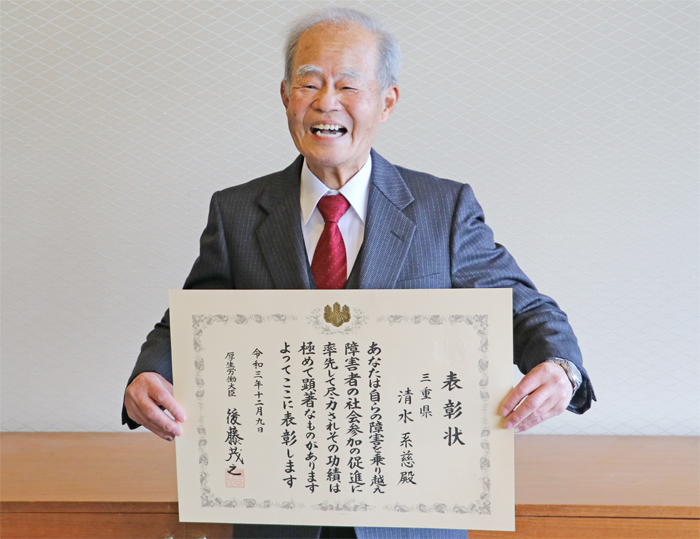 表彰状
三重県
清水 系慈殿
あなたは自らの障害を乗り越え
障害者の社会参加の促進に
率先して尽力されその功績は
極めて顕著なものがあります
よってここに表彰します
令和三年十二月九日
厚生労働大臣
後藤茂之